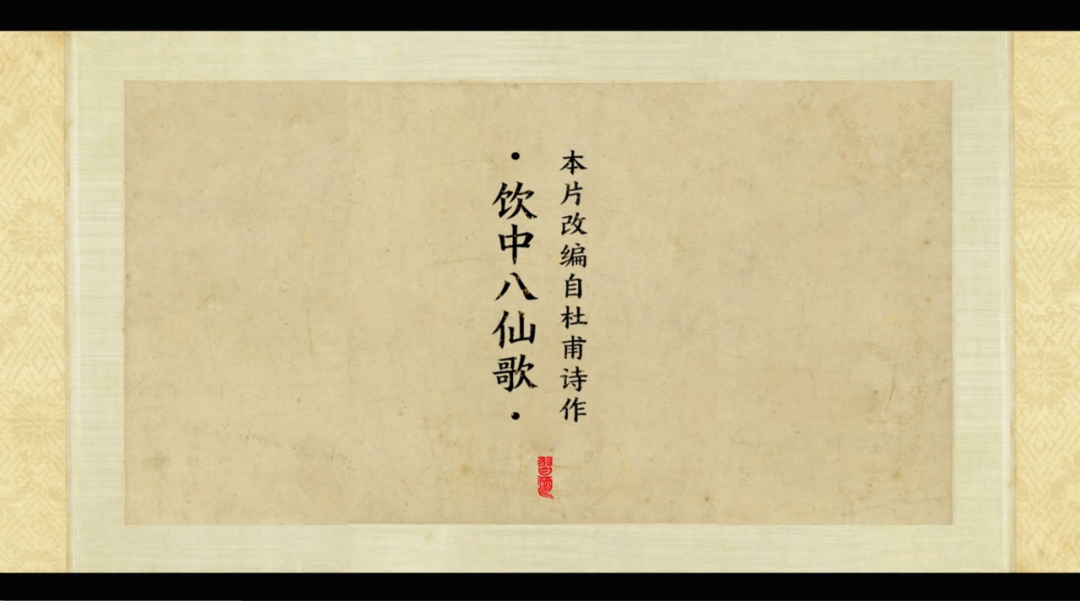 本片改编自杜甫诗作
·饮中八仙歌·
習酒